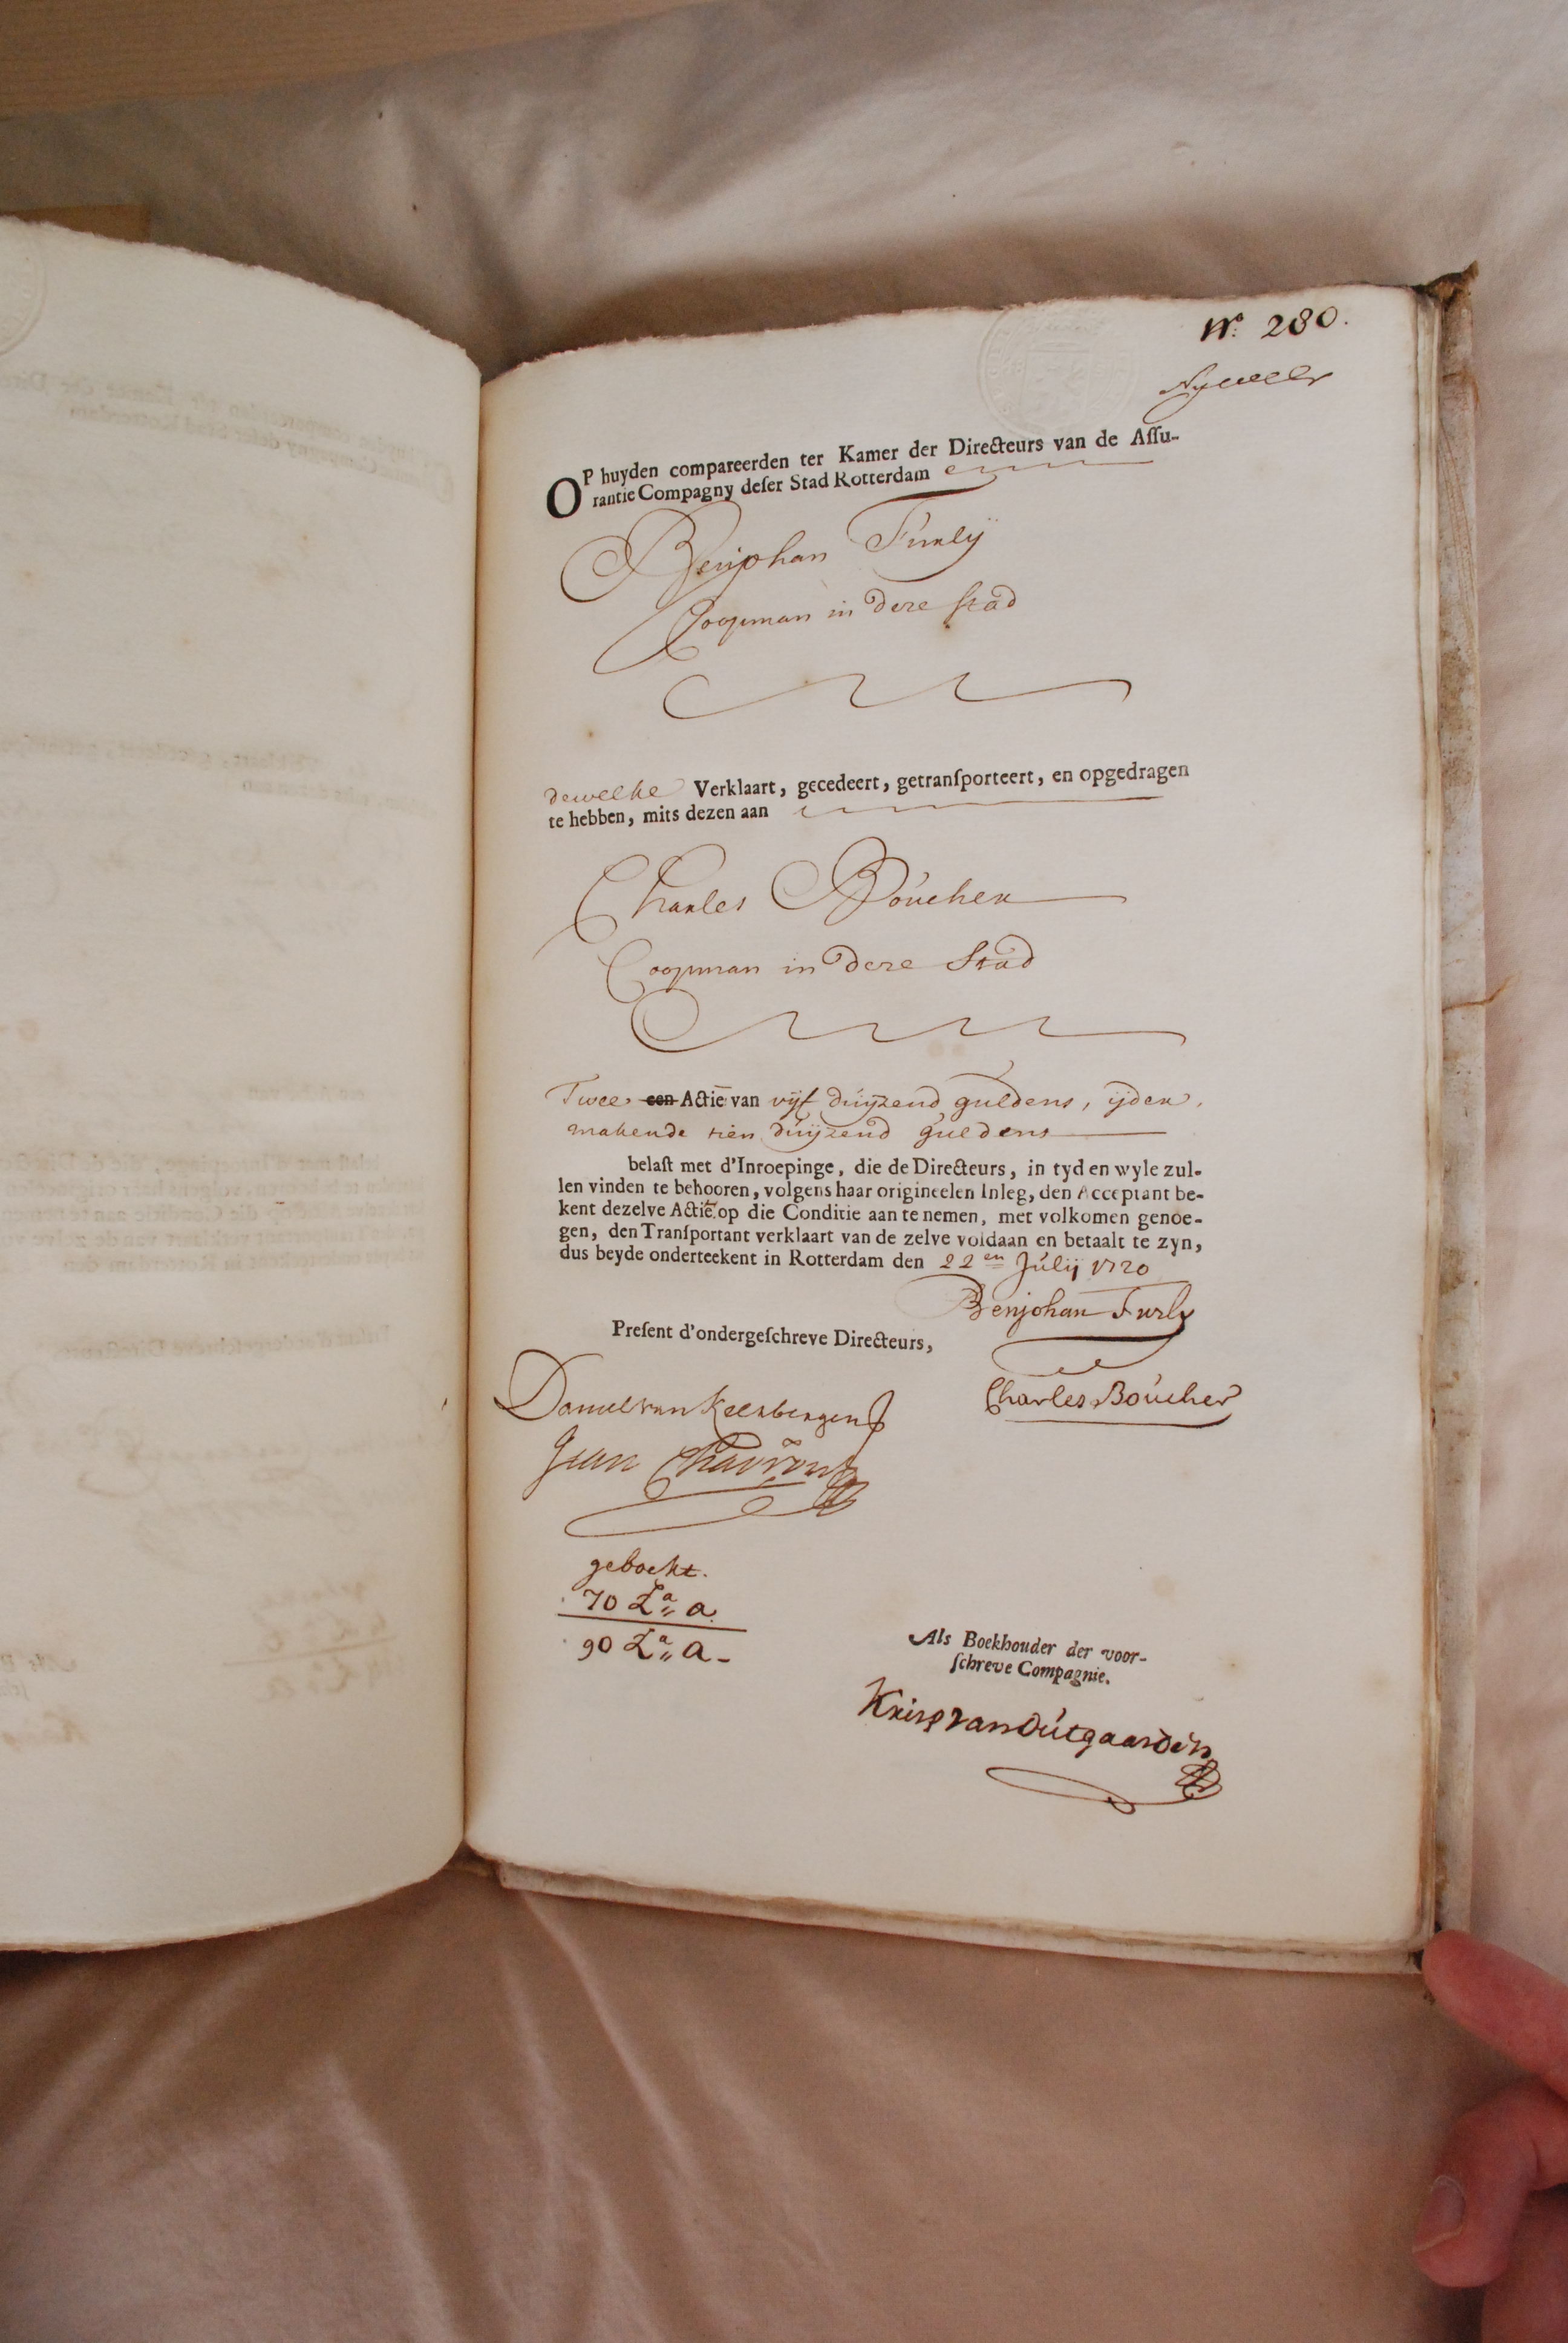 No. 280.
OP huyden compareerden ter Kamer der Directeurs van de Assu-
rantie Compagny deser Stad Rotterdam
Benjohan Furlij
Coopman in deze stad
dewelke Verklaart, gecedeert, getransporteert, en opgedragen
te hebben, mits dezen aan
Charles Boucher
Coopman in deze Stad
Twee een Actie van vijf duijzend guldens, ijder,
makende tien duijzend guldens
belast met d'Inroepinge, die de Directeurs, in tyd en wyle zul-
len vinden te behooren, volgens haar origineelen Inleg, den Acceptant be-
kent dezelve Actie op die Conditie aan te nemen, met volkomen genoe-
gen, den Transportant verklaart van de zelve voldaan en betaalt te zyn,
dus beyde onderteekent in Rotterdam den 22en Julij 1720
Benjohan Furly
Present d'ondergeschreve Directeurs,
Charles Boucher
Daniel van
Jean
geboekt.
70 La a.
90 La a
Als Boekhouder der voor-
schreve Compagnie.
Krisp van Outgaarden